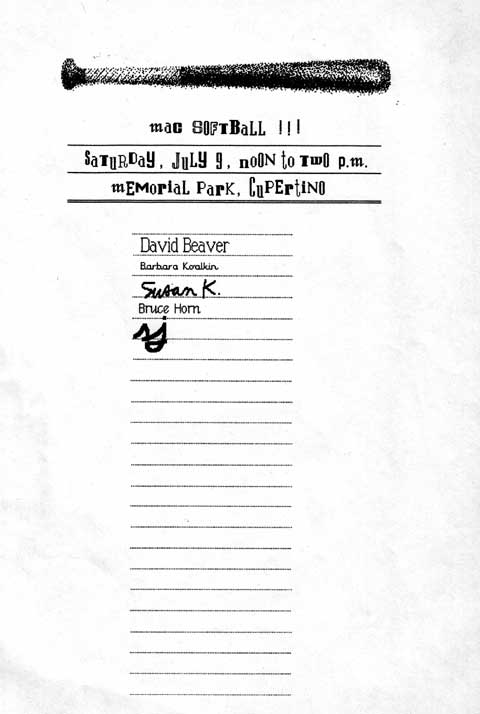 mac SOFTBaLL !!!
SaTURDay, JULY 9, nOON to TWO p.m.
mEMOrial Park, CuPErtiNO
David Beaver
Barbara Koalkin
Susan K.
Bruce Horn
sj